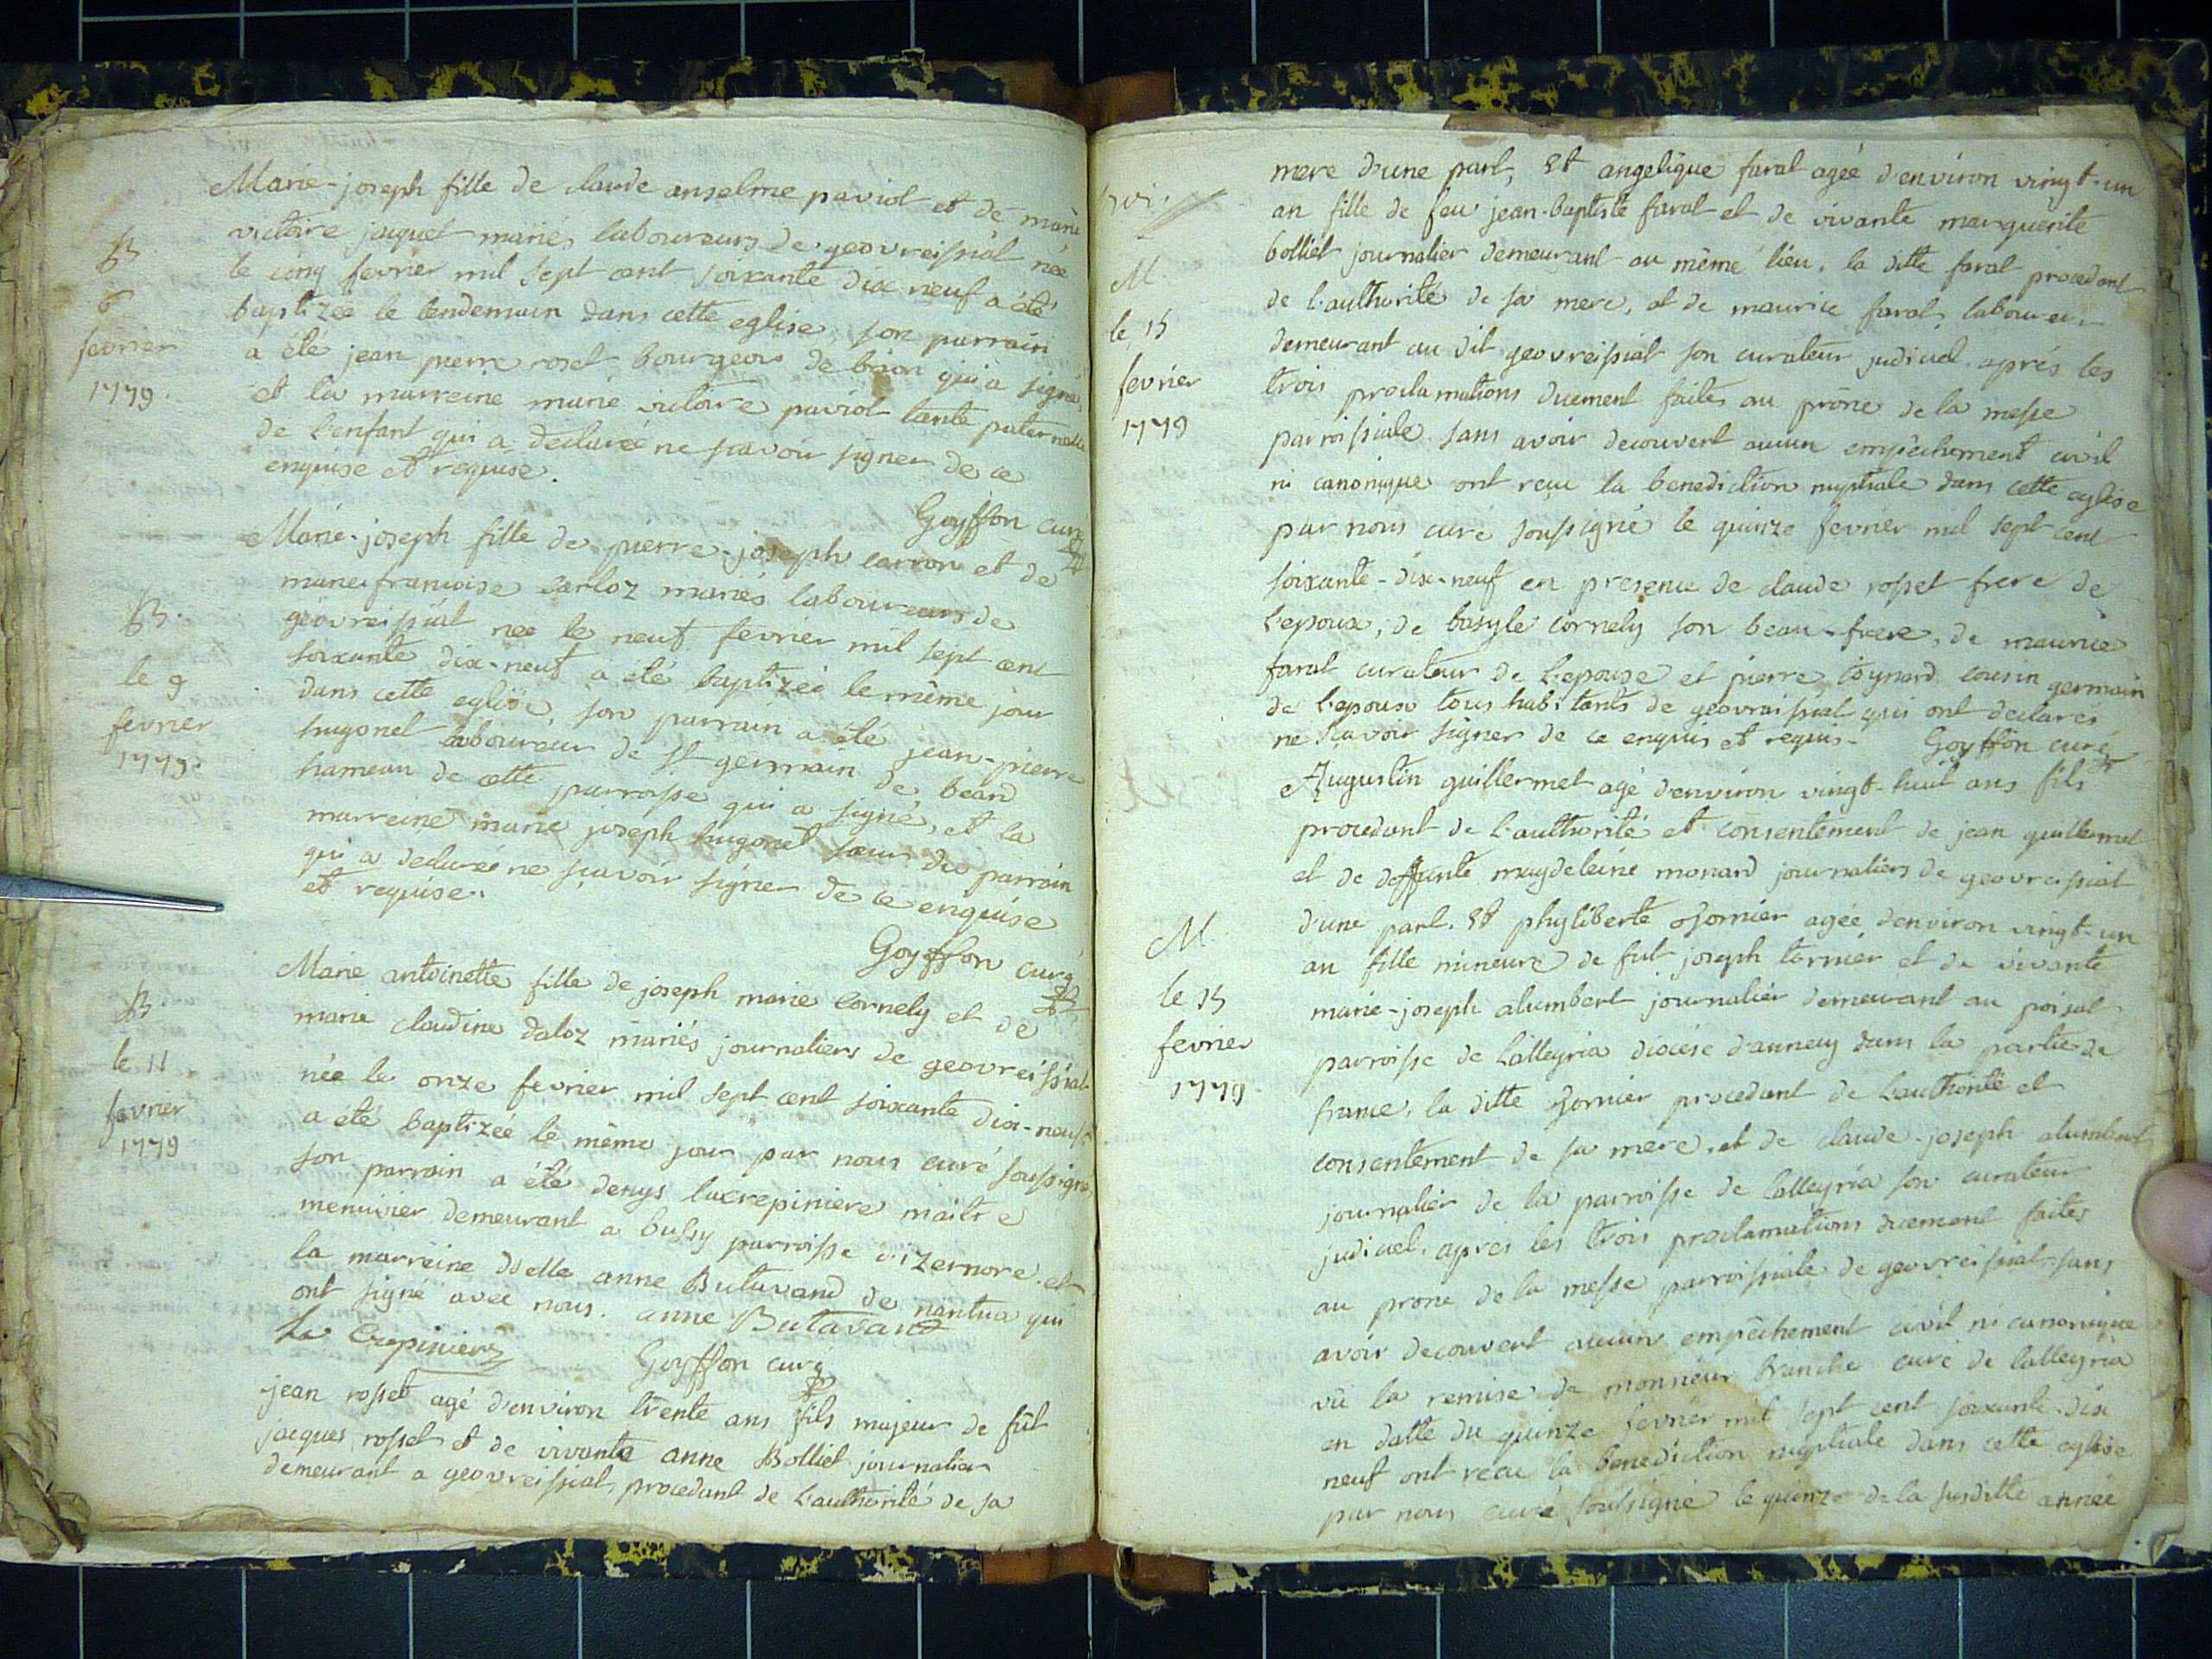 Marie-joseph fille de claude anselme paviot et de marie
victoire jaquet mariés laboureurs de geovreissiat née
B.
le cinq fevrier mil sept cent soixante dix neuf a été
6
baptizée le lendemain dans cette eglise, son parrain
fevrier
a été jean pierre roset bourgeois de brion qui a signé,
1779.
et la marreine marie victoire paviot tante paternelle
de l'enfant qui a declaréé ne scavoir signer de ce
enquise et requise.
Goyffon curé
Marie-joseph fille de pierre-joseph carron et de
marie francoise carloz mariés laboureurs de
B.
geovreissiat née le neuf fevrier mil sept cent
soixante dix-neuf a été baptizéé le même jour
le 9
dans cette eglise, son parrain a été jean-pierre
fevrier
hugonet laboureur de st germain de beard
1779.
hameau de cette parroisse qui a signé, et la
marreine marie joseph hugonet soeur du parrain
qui a declaréé ne sçavoir signer de ce enquise
et requise.
Goyffon curé
Marie antoinette fille de joseph marie Cornely et de
B.
marie claudine daloz mariés journaliers de geovreissiat
le 11
née le onze fevrier mil sept cent soixante dix-neuf
fevrier
a été baptizéé le même jour par nous curé soussigné,
1779
son parrain a été denys lacrepiniere maitre
menuisier demeurant a bussy parroisse d'izernore et
la marreine dselle anne Butavand de nantua qui
ont signé avec nous. anne Butavand
la Crepiniere
Goyffon curé
jean rosset agé d'environ trente ans fils majeur de fût
jacques rosset et de vivante anne Bolliet journalier
demeurant a geovreissiat, procedant de l'authorité de sa
mere d'une part, Et angelique farat agéé d'environ vingt-un
an fille de feu jean-baptiste farat et de vivante marguerite
M.
bolliet journalier demeurant au même lieu, la ditte farat procedant
le 15
de l'authorité de sa mere, et de maurice farat, laboureur
fevrier
demeurant au dit geovreissiat son curateur judiciel. aprés les
1779
trois proclamations duement faites au prône de la messe
parroissiale sans avoir decouvert aucun empêchement civil
ni canonique ont reçu la benediction nuptiale dans cette eglise
par nous curé soussigné le quinze fevrier mil sept cent
soixante-dix-neuf en presence de claude rosset frere de
l'epoux, de basyle cornely son beau-frere, de maurice
farat curateur de l'epouse et pierre coynard cousin germain
de l'epoux tous habitants de geovreissiat qui ont declarés
ne sçavoir signer de ce enquis et requis- Goyffon curé
Augustin guillermet agé d'environ vingt-huit ans fils
procedant de l'authorité et consentement de jean guillermet
et de deffunte magdeleine monard journaliers de geovreissiat
M.
d'une part. Et phyliberte tornier agée d'environ vingt-un
le 15
an fille mineure de fut joseph tornier et de vivante
fevrier
marie-joseph alumbert journalier demeurant au poizat
1779.
parroisse de Lalleyria diocése d'annecy dans la partie de
france, la ditte tornier procedant de l'authorité et
consentement de sa mere, et de claude-joseph alumbert
journalier de la parroisse de Lalleyria son curateur
judiciel, aprés les trois proclamations duement faites
au prone de la messe parroissiale de geovreissiat sans
avoir decouvert aucun empêchement civil ni canonique
vû la remise de monsieur branche curé de lalleyria
en datte du quinze fevrier mil sept cent soixante-dix
neuf ont reçu la benediction nuptiale dans cette eglise
par nous curé soussigné le quinze de la susditte année